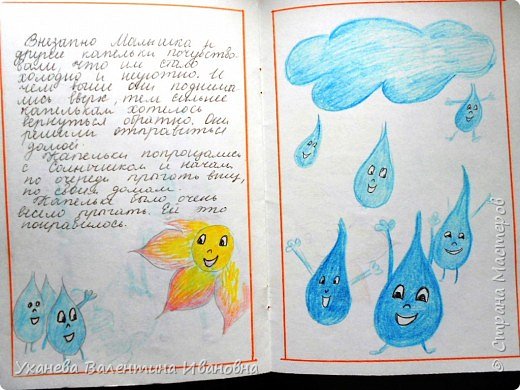 Внезапно Малышка и
другие капельки почувство-
вали, что им стало
холодно и неуютно. И
чем выше они поднима
лись вверх, тем сильнее
капелькам хотелось
вернуться обратно. Они
решили отправиться
домой.
Капельки попрощались
с Солнышком и начали
по очереди прыгать вниз,
по своим домам.
Капельке было очень
весело прыгать. Ей это
понравилось.
Уханева Валентина Ивановна
© Страна Мастеров